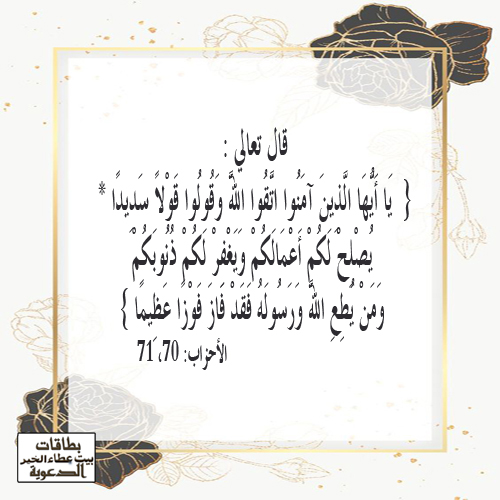 قال تعالي :
{ يَا أَيُّهَا الَّذِينَ آمَنُوا اتَّقُوا اللَّهَ وَقُولُوا قَوْلًا سَدِيدًا *
يُصْلِحْ لَكُمْ أَعْمَالَكُمْ وَيَغْفِرْ لَكُمْ ذُنُوبَكُمْ
وَمَنْ يُطِعِ اللَّهَ وَرَسُولَهُ فَقَدْ فَازَ فَوْزًا عَظِيمًا }
الأحزاب: 70، 71
بطاقات
بيت عطاء الخير
الدعوية